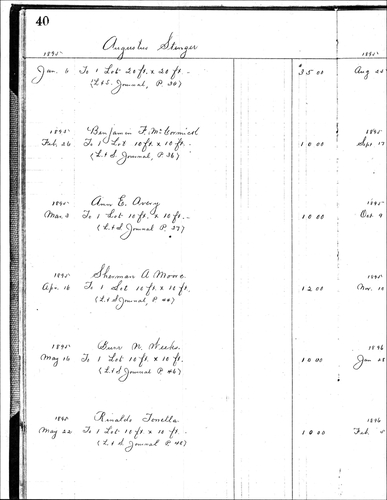 40
Augustus Stenger
1895 1895
Jan. 5 To 1 Lot 20 ft. x 20 ft. - $35 00 Aug 25
(L & S. Journal, P. 30)
1895 Benjamin F. McCormick 1895
Feb. 26 To 1 Lot 10 ft. x 10 ft. - 10 00 Sept. 17
(L & S Journal, P. 36)
1895 Ann E. Avery 1895
Mar. 2 To 1 Lot 10 ft. x 10 ft. - 10 00 Oct. 9
(L & S Journal P. 37)
1895 Sherman A 1895
Apr. 16 To 1 Lot 10 ft. x 10 ft. 12 00 Nov. 10
(L & S Journal, P. 44)
1895 N. Weeks. 1896
May 16 To 1 Lot 10 ft. x 10 ft. 10 00 Jan 28
(L & S Journal P. 46)
1895 Rinaldo Tonella 1896
May 22 To 1 Lot 10 ft. x 10 ft. - 10 00 Feb.
(L & S Journal P. 48)